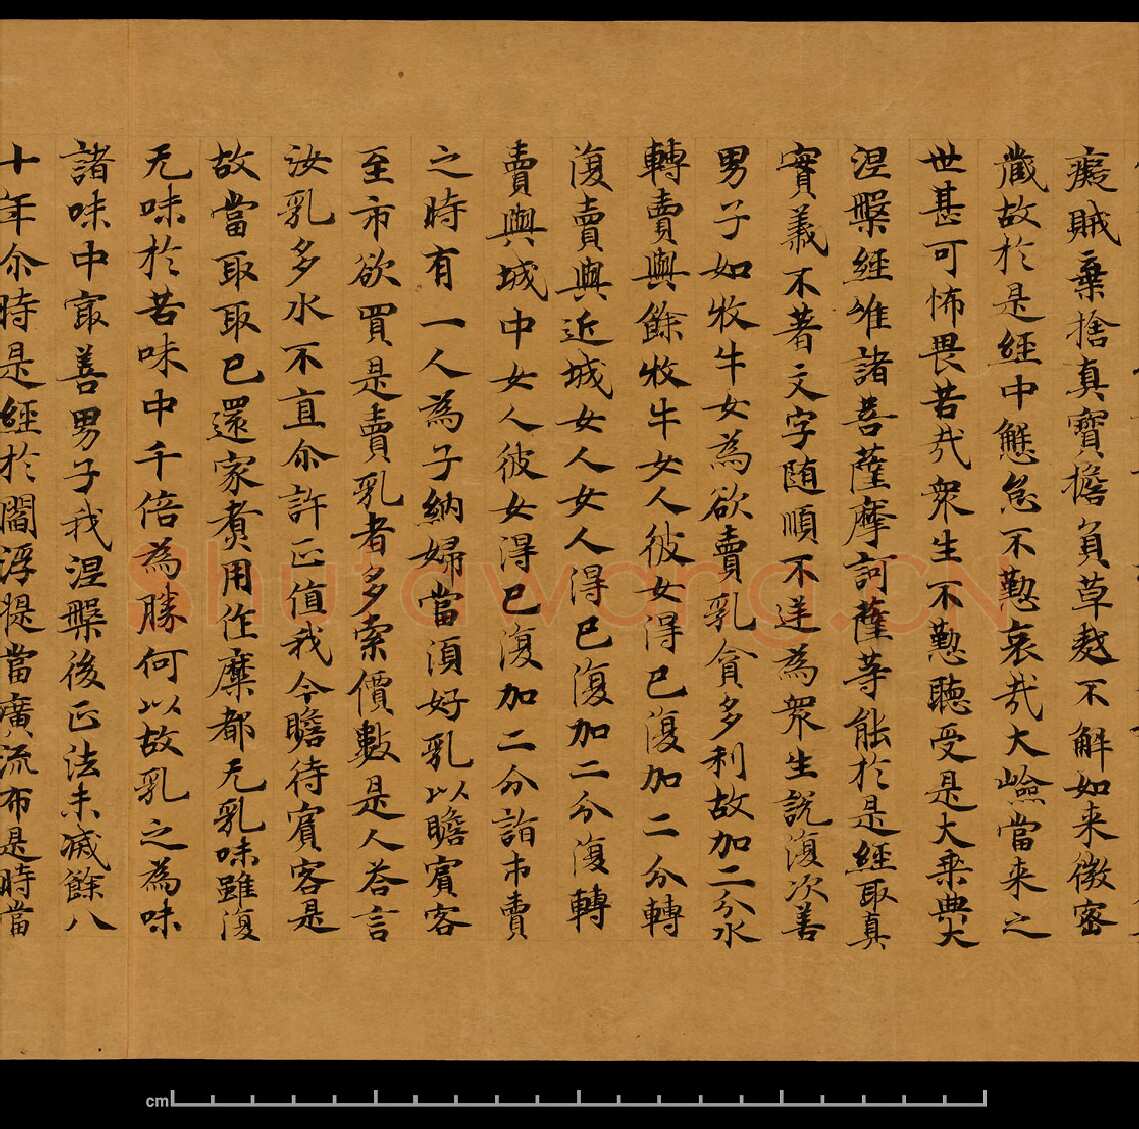 癡賊棄捨真寶擔負草𪍿不解如来微密
蔵故於是經中懈怠不懃哀㢤大嶮當来之
世甚可怖畏苦㢤衆生不懃聽受是大乗典大
涅槃經唯諸菩薩摩訶薩等能於是經取真
實義不著文字随順不逆為衆生說復次善
男子如牧牛女為欲賣乳貪多利故加二分水
轉賣與餘牧牛女人彼女得已復加二分轉
復賣與近城女人女人得已復加二分復轉
賣與城中女人彼女得已復加二分詣市賣
之時有一人為子納婦當湏好乳以瞻賓客
至市欲買是賣乳者多索價數是人荅言
汝乳多水不直尒許正值我今瞻待賓客是
故當取取已還家煮用作糜都无乳味雖復
无味於苦味中千倍為勝何以故乳之為味
諸味中㝡善男子我涅槃後正法未滅餘八
十年尒時是經於閻浮提當廣流布是時當
Shufawang.CN
cm